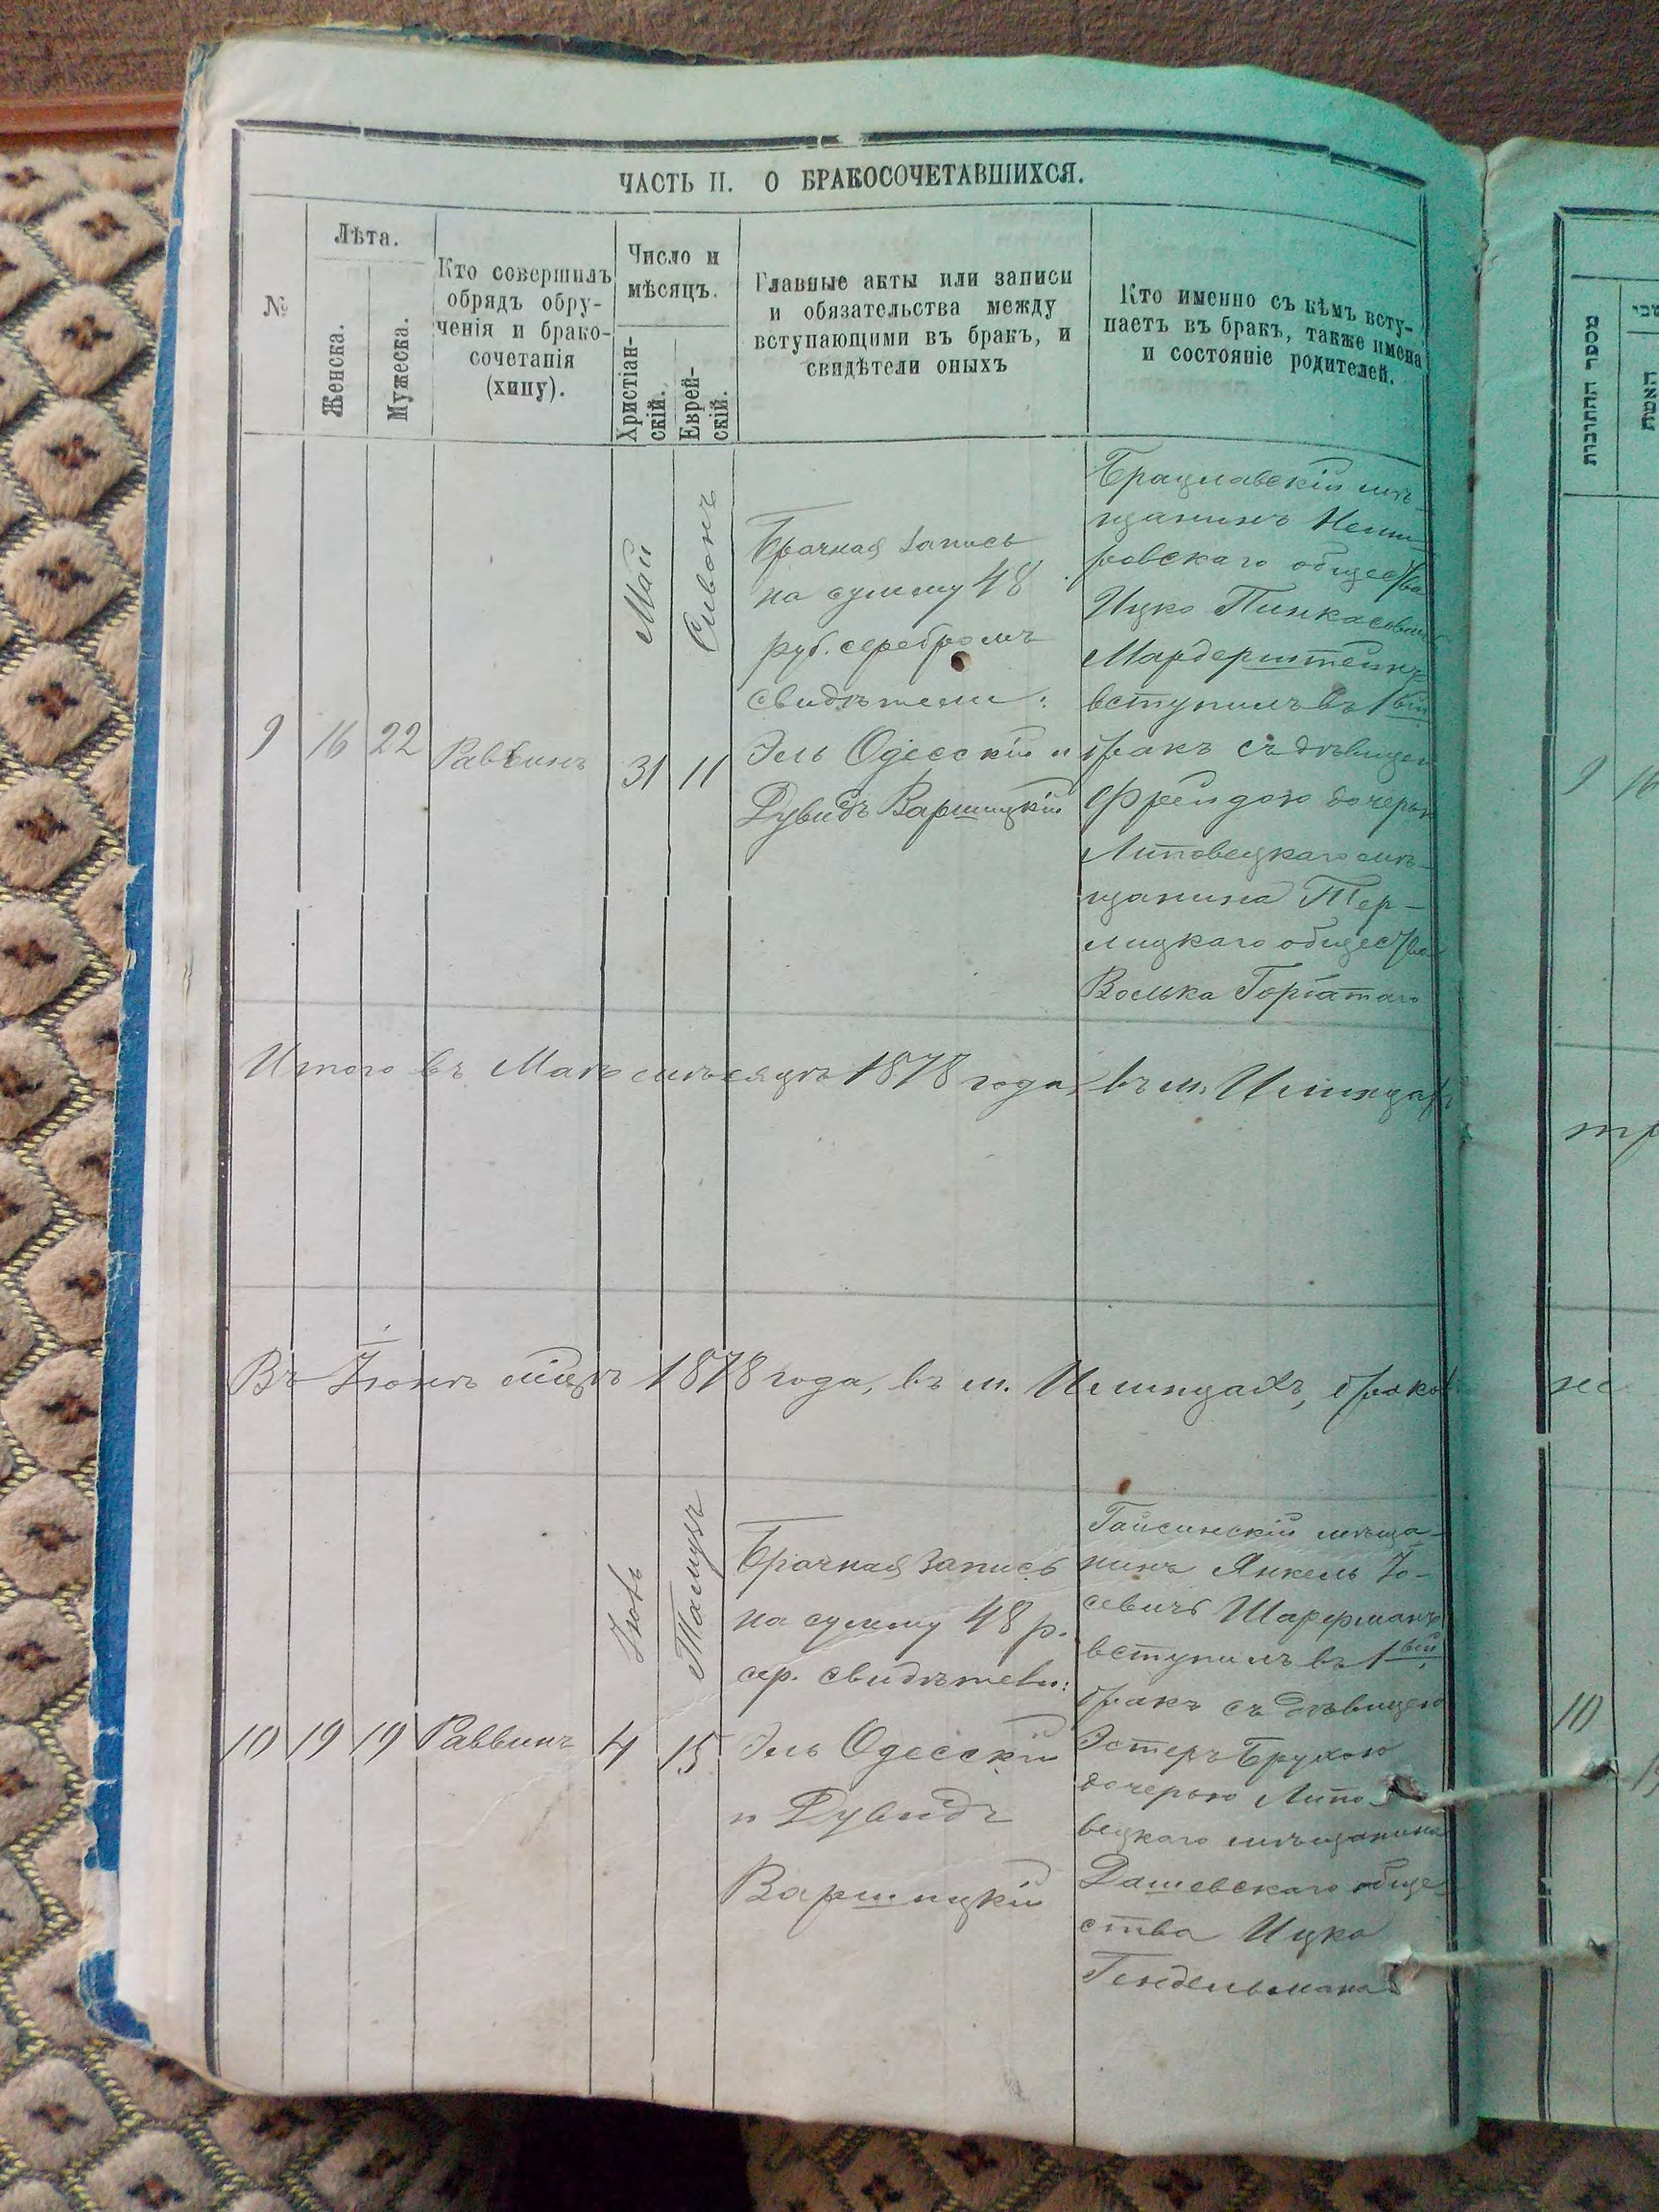 ЧАСТЬ II. О БРАКОСОЧЕТАВШИХСЯ.
№
Лѣта.
Женска.
Мужеска.
Кто совершилъ
обрядъ обру-
ченія и брако-
сочетанія
(хипу).
Число и
мѣсяцъ.
Христіан-
скій.
Еврей-
скій.
Главные акты или записи
и обязательства между
вступающими въ бракъ, и
свидѣтели оныхъ
Кто именно съ кѣмъ всту-
паетъ въ бракъ, также имена
и состояніе родителей.
9
16
22
Раввинъ
Май
31
Сивонъ
11
Брачная запись
на сумму 48
руб. серебромъ
свидѣтели:
Эль Одесскій и
Дувидъ Варшицкій
Брацлавскій мѣ-
щанинъ Неми-
ровскаго общества
Ицко Пинкасовичъ
Мардерштейнъ
вступилъ въ 1вый
бракъ съ дѣвицею
Фрейдою дочерью
Липовецкаго мѣ-
щанина Тер-
лицкаго общества
Волька Горбатаго
Итого въ Маѣ мѣсяцѣ 1878 года, въ м. Ильинцахъ
Въ Іюнѣ мѣсяцѣ 1878 года, въ м. Ильинцахъ, браков
10
19
19
Раввинъ
Іюнь
4
Тамузъ
15
Брачная запись
на сумму 48 р.
сер. свидѣтели:
Эль Одесскій
и Дувидъ
Варшицкій
Гайсинскій мѣща-
нинъ Янкель Іо-
севичъ Шарфманъ
вступилъ въ 1вый
бракъ съ дѣвицею
Эстеръ Брухою
дочерью Липо-
вецкаго мѣщанина
Дашевскаго обще-
ства Ицка
Гендельмана
מספר החתונות
האשה
9 16
10